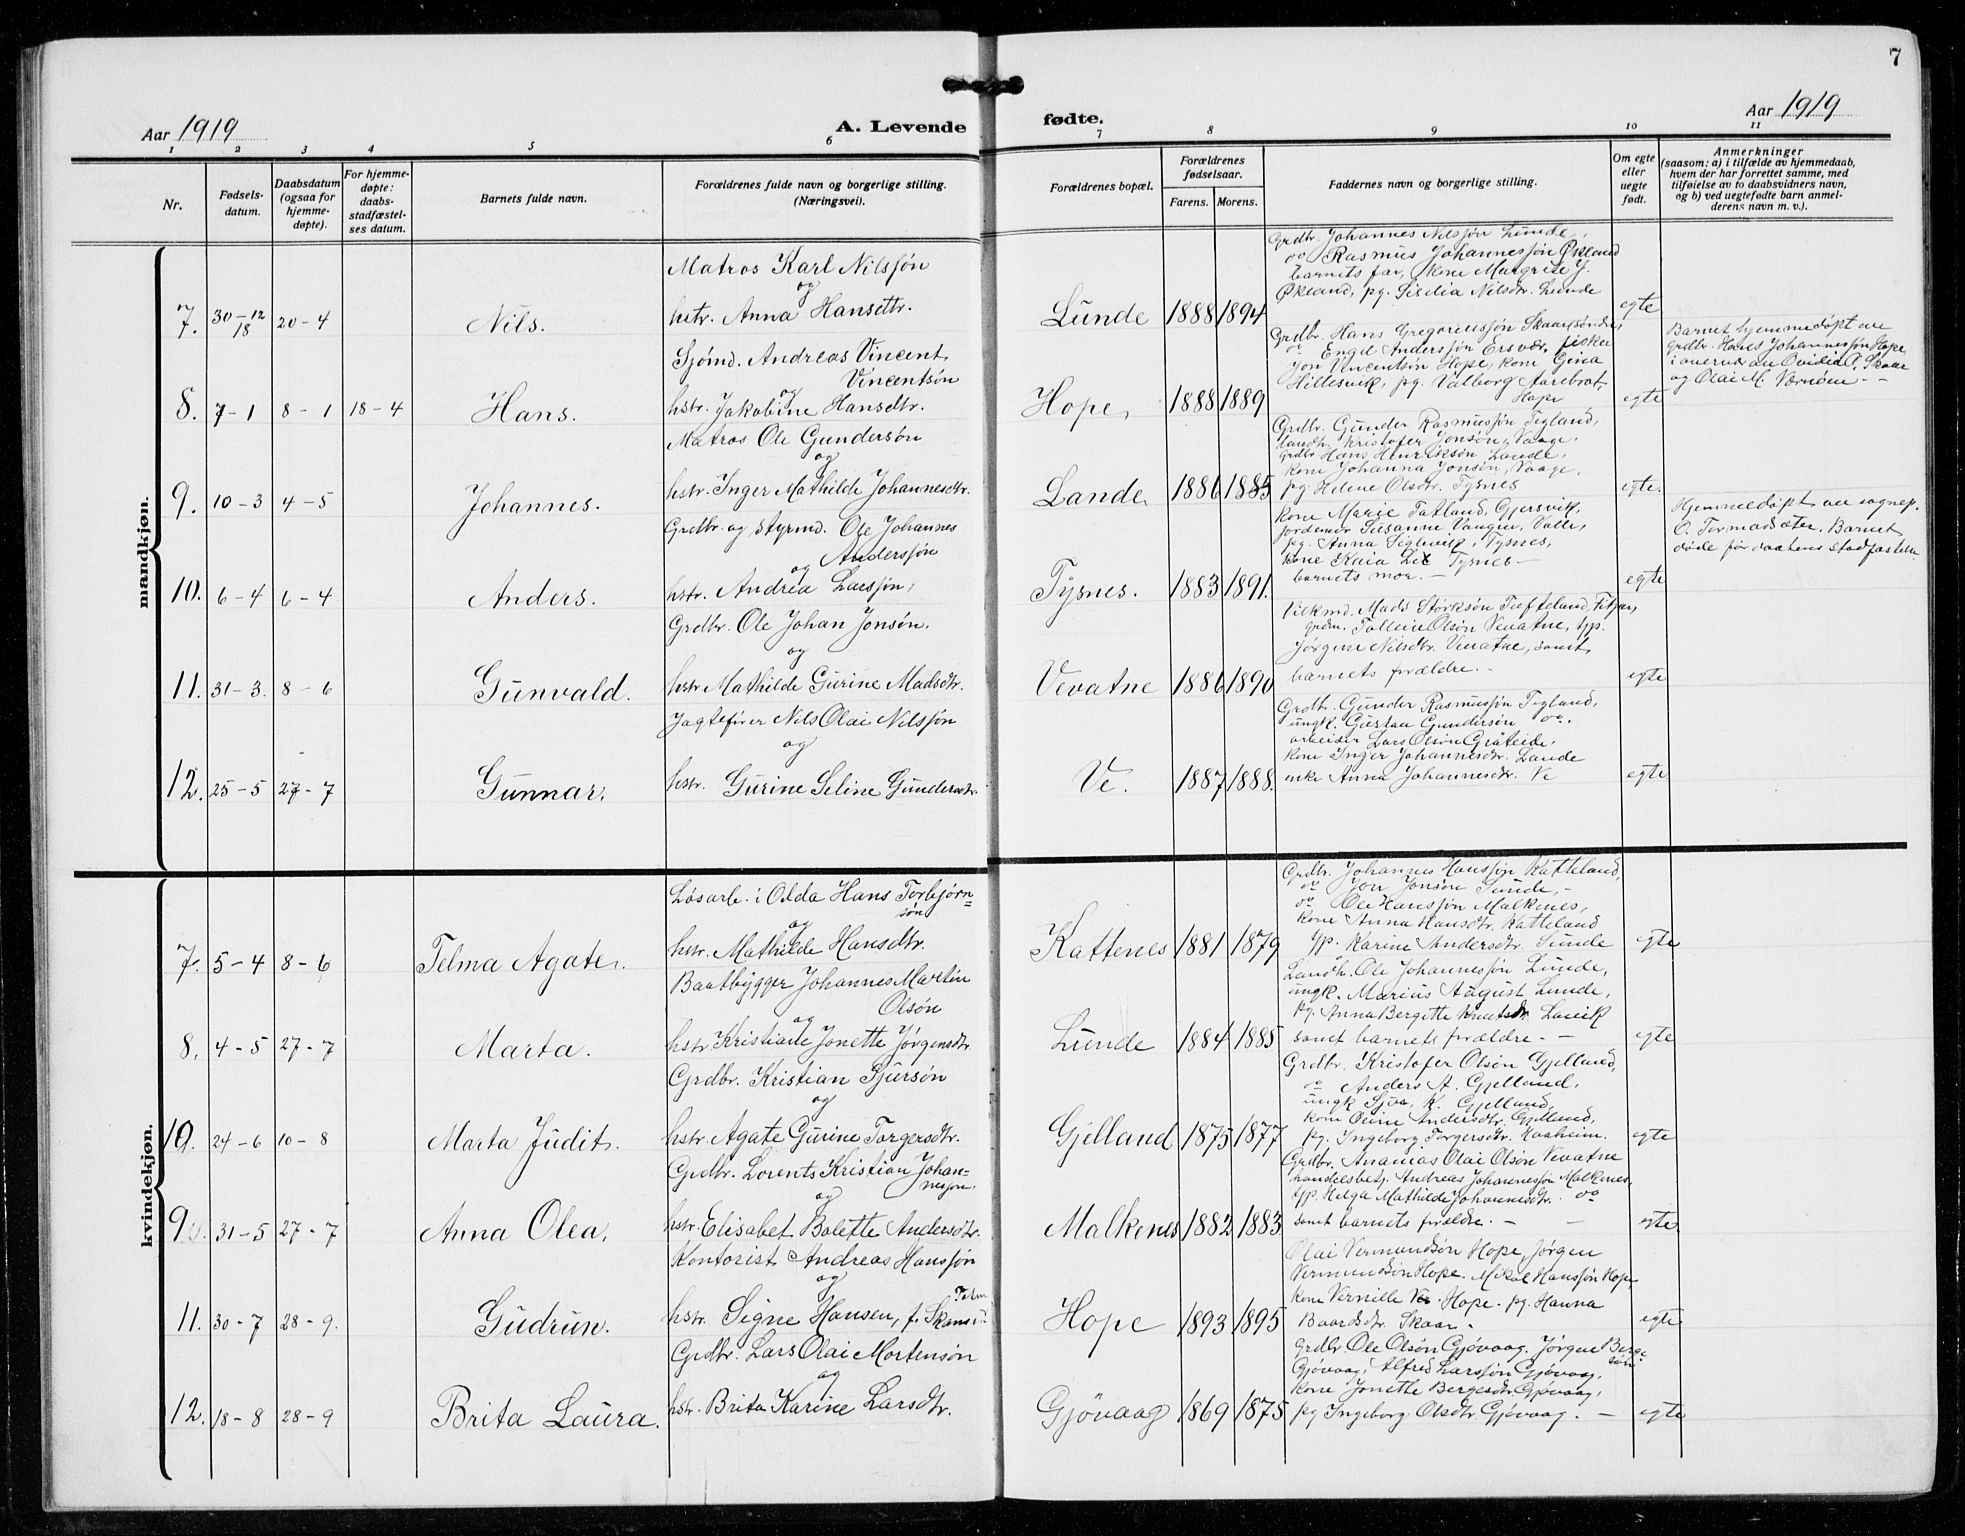 7
Aar 1919
A. Levende
fødte.
Aar 1919
1 2 3 4 5 6 7 8 9 10 11
Nr.
Fødsels-
datum.
Daabsdatum
(ogsaa for
hjemme-
døpte).
For hjemme-
døpte:
daabs-
stadfæstel-
ses datum.
Barnets fulde navn.
Forældrenes fulde navn og borgerlige stilling.
(Næringsvei).
Forældrenes bopæl.
Forældrenes
fødselsaar.
Farens. Morens.
Faddernes navn og borgerlige stilling.
Om egte
eller
uegte
født.
Anmerkninger
(saasom: a) i tilfælde av hjemmedaab,
hvem der har forrettet samme, med
tilføielse av to daabsvidners navn,
og b) ved uegtefødte barn anmel-
derens navn m. v.).
mandkjøn.
7. 30-12 18 20-4 Nils.
Matros Karl Nilssøn
og
hstr. Anna Hansdtr.
Lunde 1888 1894
Grdbr. Johannes Nilssøn Lunde,
do Rasmus Johannessøn Økland
barnets far, kone Margrete J.
Økland, pg. Sisilia Nilsdtr. Lunde
egte
8. 7-1 8-1 18-4 Hans.
Sjømd. Andreas Vincent
Vincentsøn
og
hstr. Jakobine Hansdtr.
Hope, 1888 1889
Grdbr. Hans Gregoriussøn Skaar, søndre,
do Engel Anderssøn Ersvær, fisker
Jon Vincentsøn Hope, kone Gina
Hillesvik, pg. Valborg Aarebrot,
Hope
egte
Barnet hjemmedøpt av
grdbr. Hans Johannessøn Hope,
i overvær av Ovidia A. Skaar
og Olai M. Værnøen - -
9. 10-3 4-5 Johannes.
Matros Ole Gundersøn
og
hstr. Inger Mathilde Johannesdtr.
Lande 1886 1885
Grdbr. Gunder Rasmussøn Tegland,
landh. Kristofer Jonsøn, Vaage,
grdbr Hans Henriksøn Lande,
kone Johanna Jonsøn, Vaage,
pg. Helene Olsdtr. Tysnes
egte.
10. 6-4 6-4 Anders.
Grdbr. og styrmd. Ole Johannes
Anderssøn
og
hstr. Andrea Larssøn,
Tysnes. 1883 1891.
kone Marie Tatland, Gjersvik,
jordemor Susanne Vangen, Valle,
pg. Anna Siglevik, Tysnes,
kone Kaia Lie Tysnes -
barnets mor. -
egte
Hjemmedøpt av sognep.
O. Tormodsæter. Barnet
døde før daabens stadfæstelse
11. 31-3. 8-6 Gunvald.
Grdbr. Ole Johan Jonsøn.
og
hstr Mathilde Gurine Madsdtr.
Vevatne 1886 1890
Mads Størksøn Tufteland, Fitjar,
Tolleiv Olsøn Vevatne, tjp.
Jørgine Nilsdtr. Vevatne, samt
barnets forældre. -
egte
12. 25-5 27-7 Gunnar.
Jagtefører Nils Olai Nilssøn
og
hstr. Gurine Seline Gundersdtr.
Ve. 1887 1888.
Grdbr. Gunder Rasmussøn Tegland,
ungk. Gustav Gundersøn do.
arbeider Lars Olsøn Gråteide,
kone Inger Johannesdtr. Lande
enke Anna Johannesdtr. Ve
egte
kvindekjøn.
7. 5-4 8-6 Telma Agate.
Løsarb. i Odda Hans Torbjørn=
søn
og
hstr. Mathilde Hansdtr.
Kattenes 1881 1879
Grdbr. Johannes Hanssøn Katteland,
do Jon Jonsøn Sunde, -
do Ole Hanssøn Malkenes,
kone Anna Hansdtr. Katteland
tjp. Karine Andersdtr. Sunde
egte
8. 4-5 27-7 Marta.
Baatbygger Johannes Martin
Olsøn
og
hstr Kristiane Jonette Jørgensdtr.
Lunde 1884 1885
Landh. Ole Johannessøn Lunde,
ungk. Marius August Lunde,
pg. Anna Bergitte Knutsdtr Lavik
samt barnets forældre. -
egte
10. 24-6 10-8 Marta Judit.
Grdbr. Kristian Sjursøn
og
hstr. Agate Gurine Torgersdtr.
Gjelland 1875 1877
Grdbr. Kristofer Olsøn Gjelland,
do Anders A. Gjelland,
ungk Sjur K. Gjelland,
kone Oline Andersdtr. Gjelland,
pg. Ingeborg Torgersdtr. Kaaheim.
egte
9. 31-5 27-7 Anna Olea.
Grdbr. Lorents Kristian Johan=
nessøn.
og
hstr. Elisabet Bolette Andersdtr.
Malkenes 1882 1883
Grdbr. Ananias Olai Olsøn Vevatne
handelsbetj. Andreas Johannessøn Malkenes,
tjp. Helga Mathilde Johannesdtr. do
samt barnets forældre. - -
egte
11. 30-7 28-9. Gudrun.
Kontorist Andreas Hanssøn
og
hstr. Signe Hansen, f.
Hope 1893 1895
Olai Vermundsøn Hope, Jørgen
Vermundsøn Hope. Mikal Hanssøn Hope,
kone Vernille V. Hope. pg. Hanna
Baardsdtr. Skaar.
egte
12. 18-8 28-9 Brita Laura.
Grdbr. Lars Olai Mortensøn
og
hstr. Brita Karine Larsdtr.
Gjøvaag 1869 1875
grdbr. Ole Olsøn Gjøvaag. Jørgen Berge=
søn
Gjøvaag, Alfred Larssøn Gjøvaag,
kone Jonette Bergesdtr. Gjøvaag,
pg Ingeborg Olsdtr Gjøvaag. -
egte